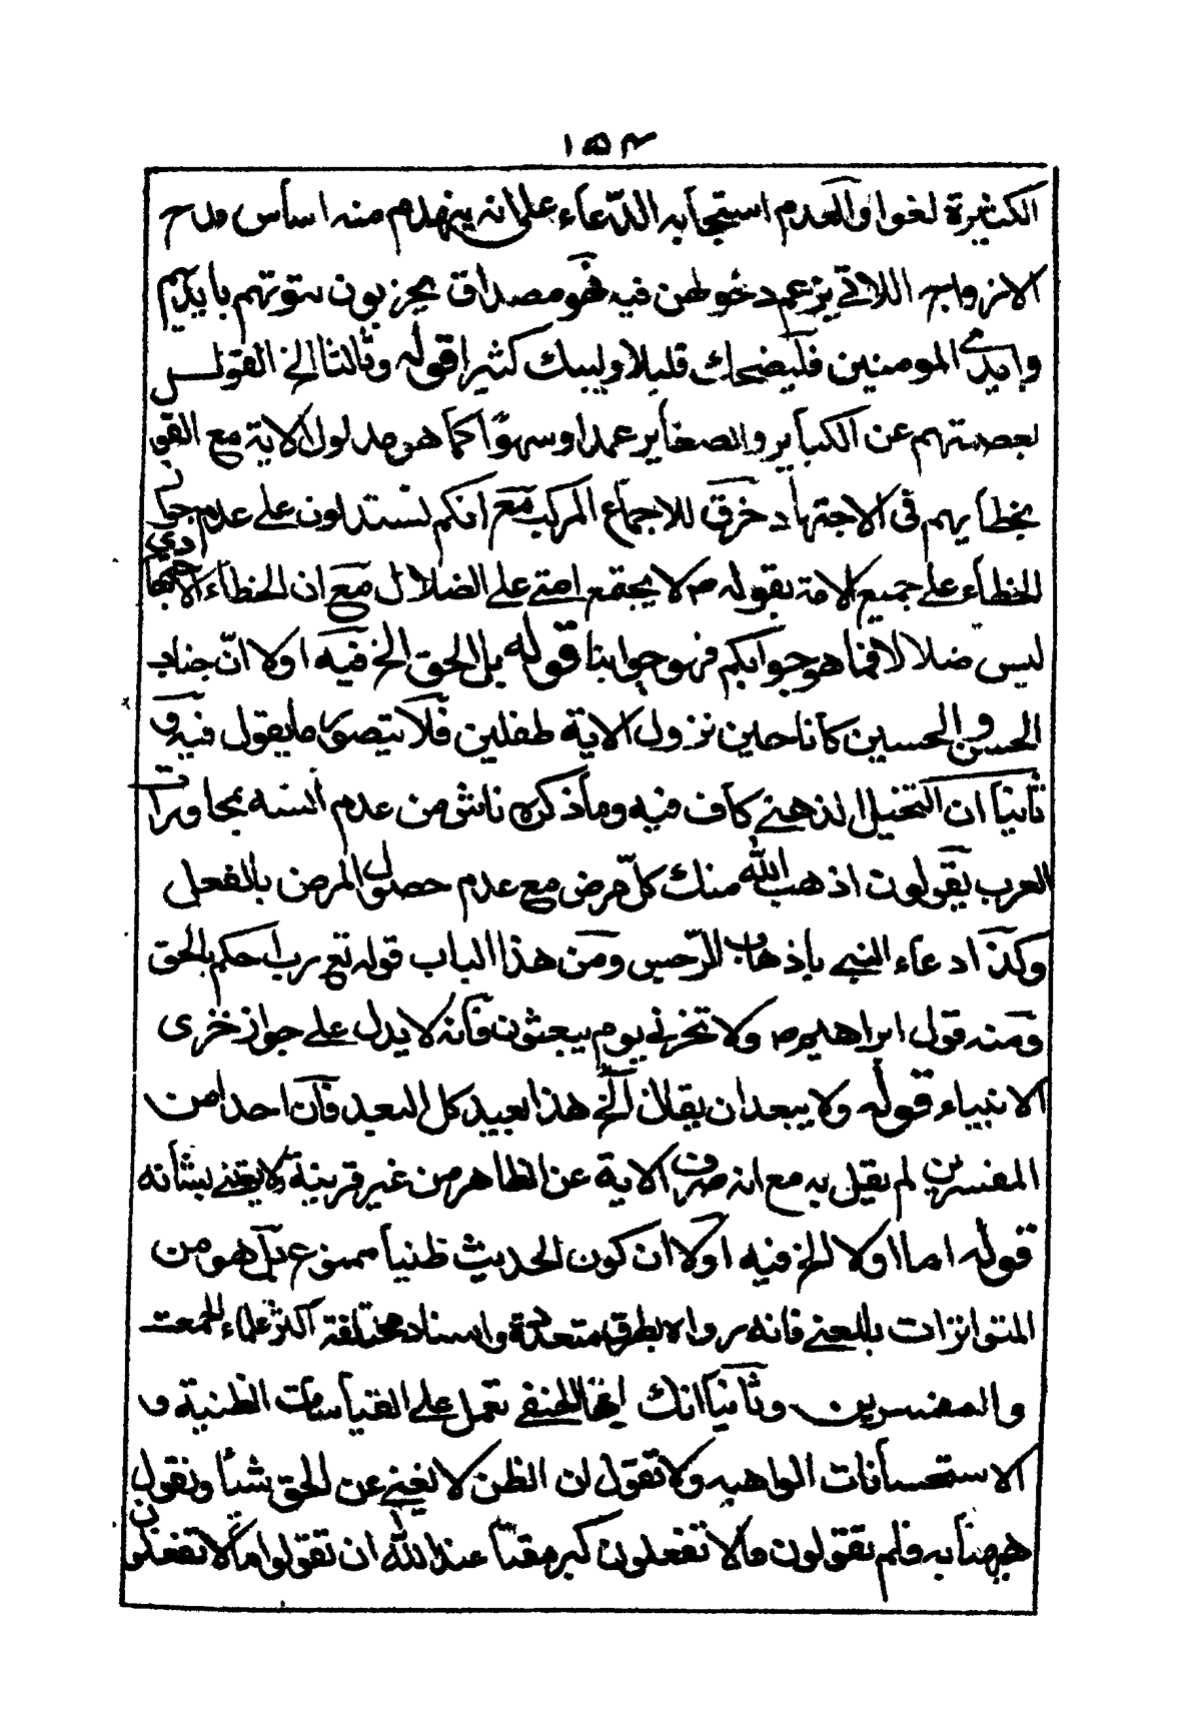 ١٥٣
الكثيرة لغوا والعدم استجابه الدّعاء على انه ينهدم منه اساس مدح
الازواج اللاتي يزعم دخولهن فيه فهو مصداق يخربون بيوتهم بايديهم
وايدي المومنين فليضحك قليلا وليبك كثيرا قوله وثالثا الخ القول
بعصمتهم عن الكباير والصغاير عمدا وسهوًا كما هو مدلول الاية مع القول
بخطايهم فى الاجتهاد خرق للاجماع المركب مع انكم تستدلون على عدم جواز
الخطاء على جميع الامة بقوله ص لا يجتمع امتي على الضلال مع ان الخطاء الاجتهادي
ليس ضلالا فما هو جوابكم فهو جوابنا قوله بل الحق الخ فيه اولا انّ جناب
الحسن والحسين كانا حين نزول الاية طفلين فلا يتصور ما يقول فيه و
ثانيا ان التخييل الذهني كاف فيه وما ذكره ناش من عدم انسه بمحاورات
العرب يقولون اذهب الله منك كلّ مرض مع عدم حصول المرض بالفعل
وكذا دعاء النبي باذهاب الرّجس ومن هذا الباب قوله تع رب احكم بالحق
ومنه قول ابراهيم ولا تخزني يوم يبعثون فانه لا يدل على جواز خزى
الانبياء قوله ولا يبعد ان يقال الخ هذا بعيد كل البعد فان احدا من
المفسرين لم يقل به مع انه صرف الاية عن الظاهر من غير قرينة ولا يعتنى بشانه
قوله اما اولا الخ فيه اولا ان كون الحديث ظنيا ممنوع بل هو من
المتواترات بالمعنى فانه رواه بطرق متعددة واسناد مختلفة اكثر علماء الجمهت
والمفسرين وثانيا انك ايها الحنفي تعمل على القياسات الظنية و
الاستحسانات الواهيه ولا تقول ان الظن لا يغني عن الحق شيئا وتقول
ههنا به فلم تقولون مالا تفعلون كبر مقتا عند الله ان تقولوا مالا تفعلون